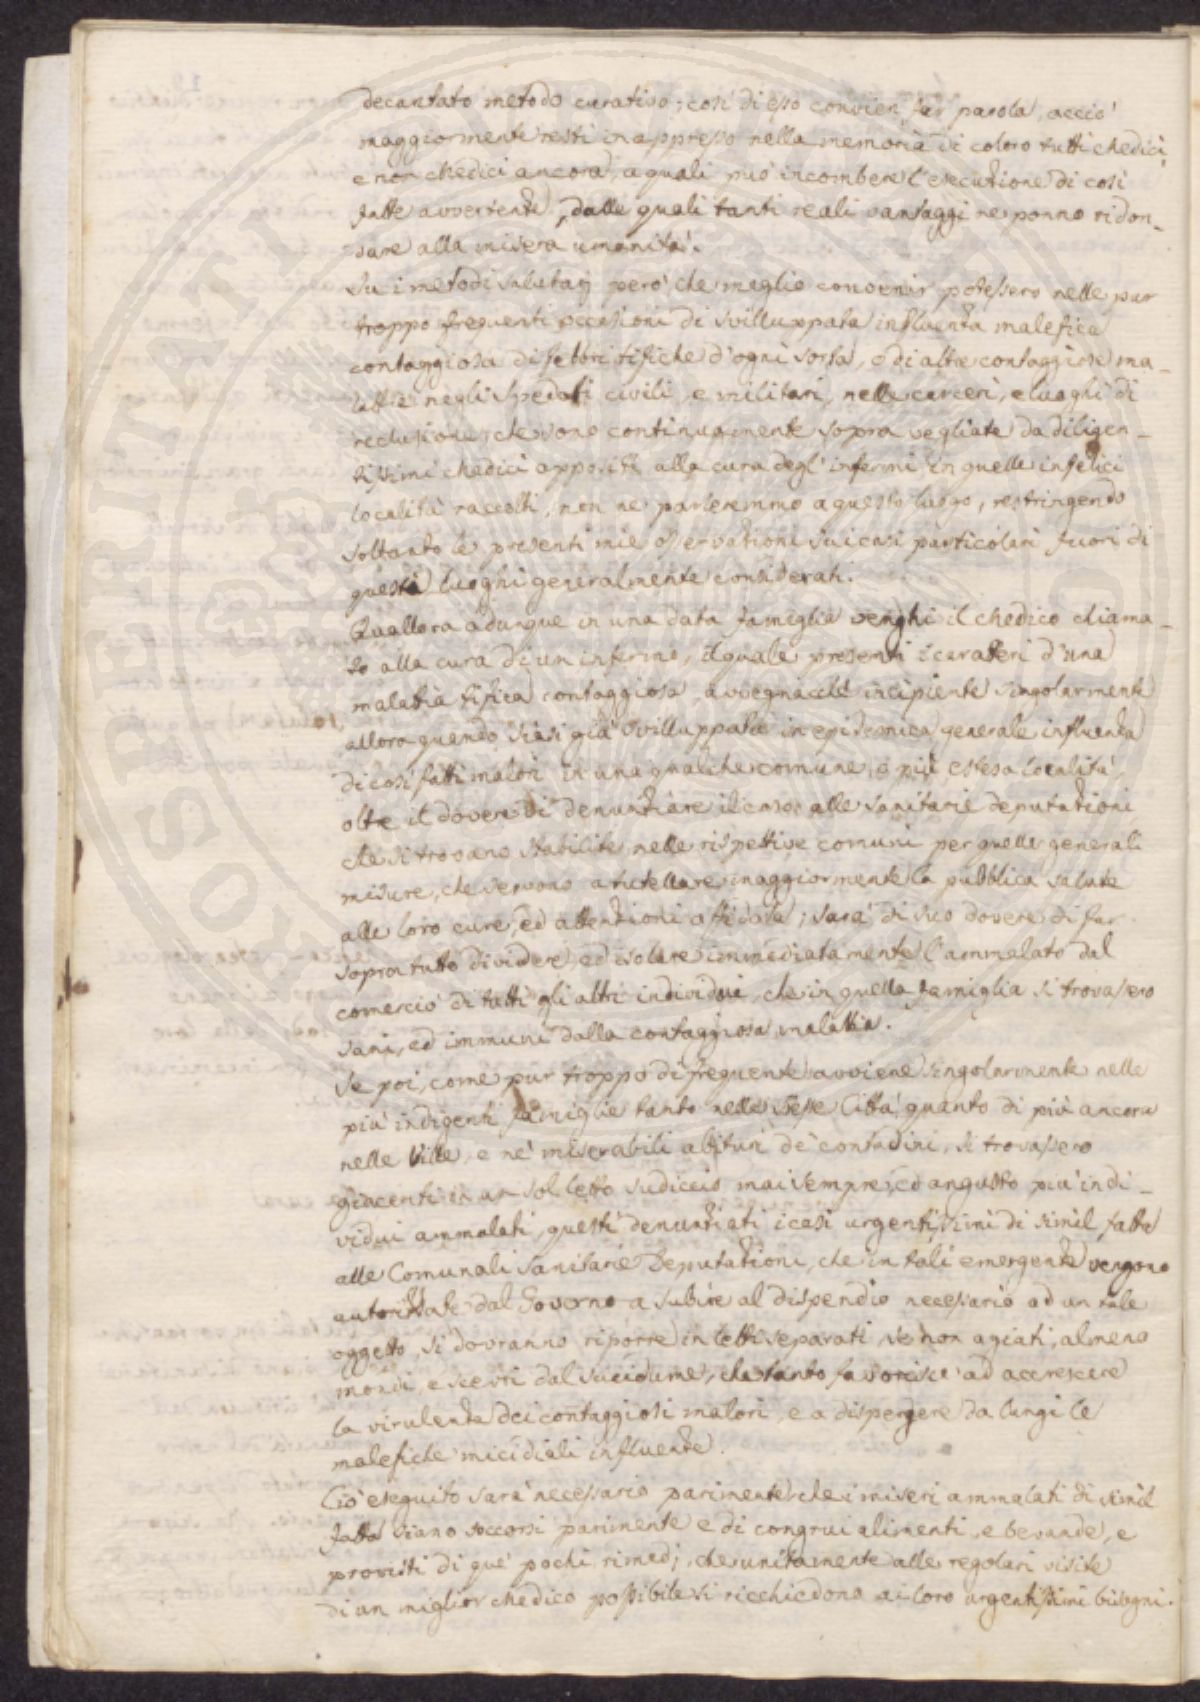 decantato metodo curativo; così di esso convien far parola, acciò
maggiormente resti in appresso nella memoria di coloro tutti Medici,
e non Medici ancora, a quali può incombere l'esecuzione di così
fatte avvertenze, dalle quali tanti reali vantaggi ne ponno ridon-
dare alla misera umanità.
Su i metodi salutarj però che meglio convenir potessero nelle pur
troppo frequenti occasioni di svilluppata influenza malefica
contaggiosa di febbri tifiche d'ogni sorta, o di altre contaggiose ma-
lattie negli Spedali civili, e militari, nelle carceri, e luoghi di
reclusione, che sono continuamente sopra vegliate da diligen-
tissimi Medici apposite alla cura degl'infermi in quelle infelici
località raccolti, non ne parleremmo a questo luogo, restringendo
soltanto le presenti mie osservazioni su i casi particolari fuori di
questi luoghi generalmente considerati.
Quallora adunque in una data famiglia venghi il Medico chiama-
to alla cura di un infermo, il quale presenti i caratteri d'una
malatia tifica contaggiosa, avvegnacchè incipiente singolarmente
allora quando siasi già svilluppata in epidemica generale influenza
di così fatti malori in una qualche comune, o più estesa località,
oltre il dovere di denunziare il caso alle sanitarie deputazioni,
che si trovano stabilite nelle rispettive comuni per quelle generali
misure, che servono a tutellare maggiormente la pubblica salute
alle loro cure, ed attenzioni affidata; sarà di suo dovere di far
sopra tutto dividere, ed isolare immediatamente l'ammalato dal
comercio di tutti gli altri individui, che in quella famiglia si trovassero
sani, ed immuni dalla contaggiosa malattia.
Se poi, come pur troppo di frequente avviene singolarmente nelle
più indigenti famiglie tanto nelle stesse Città, quanto di più ancora
nelle Ville, e ne' miserabili abituri de' contadini, si trovassero
giacenti in un sol letto sudiccio mai sempre, ed angusto più indi-
vidui ammalati, questi denunziati i casi urgentissimi di simil fatta
alle Comunali Sanitarie Deputazioni, che in tali emergenze vengono
autorizzate dal Governo a subire al dispendio necessario ad un tale
oggetto, si dovranno riporre in letti separati, se non agiati, almeno
mondi, e scevri dal sucidume, che tanto favorisce ad accrescere
la virulenza dei contaggiosi malori, e a dispergere da lungi le
malefiche micidiali influenze.
Ciò eseguito sarà necessario parimente che i miseri ammalati di simil
fatta siano soccorsi parimente e di congrui alimenti, e bevande, e
provisti di que' pochi rimedj, che unitamente alle regolari visite
di un miglior Medico possibile si ricchiedono ai loro urgentissimi bisogni.